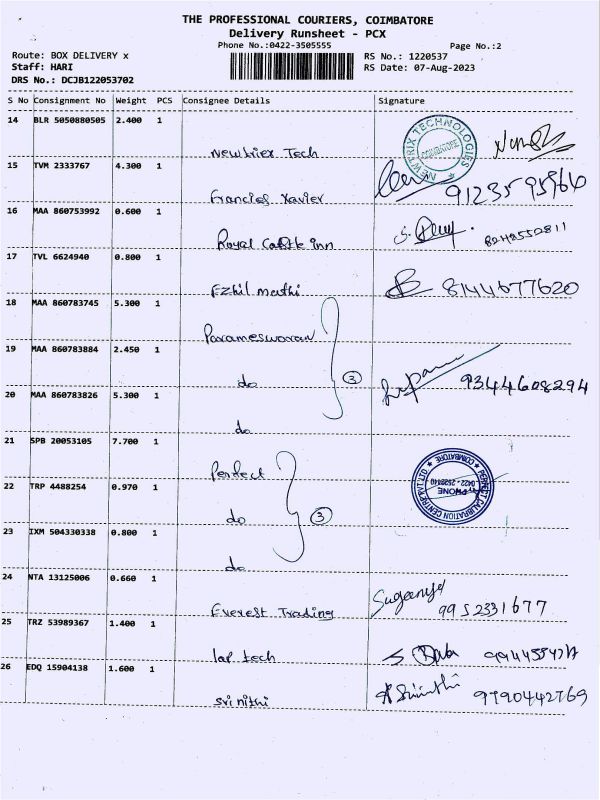 THE PROFESSIONAL COURIERS, COIMBATORE
Delivery Runsheet - PCX
Phone No.:0422-3505555 Page No.:2
Route: BOX DELIVERY x RS No.: 1220537
Staff: HARI RS Date: 07-Aug-2023
DRS No.: DCJB122053702
S No Consignment No Weight PCS Consignee Details Signature
14 BLR 5050880505 2.400 1
Newtriex Tech
NEWTRIX TECHNOLOGIES
COIMBATORE
15 TVM 2333767 4.300 1
Francies Xavier 9123595966
16 MAA 860753992 0.600 1
Royal Castle inn
17 TVL 6624940 0.800 1
Ezhil mathi 8144677620
18 MAA 860783745 5.300 1
Parameswaran
19 MAA 860783884 2.450 1
do 3 9344608294
20 MAA 860783826 5.300 1
do
21 SPB 20053105 7.700 1
Perfect
PERFECT CALIBRATION CENTRE PVT LTD
COIMBATORE
PHONE
22 TRP 4488254 0.970 1
do 3
23 IXM 504330338 0.800 1
do
24 NTA 13125006 0.660 1
Everest Trading 9952331677
25 TRZ 53989367 1.400 1
lap tech
26 EDQ 15904138 1.600 1
Srinithi 9790442769